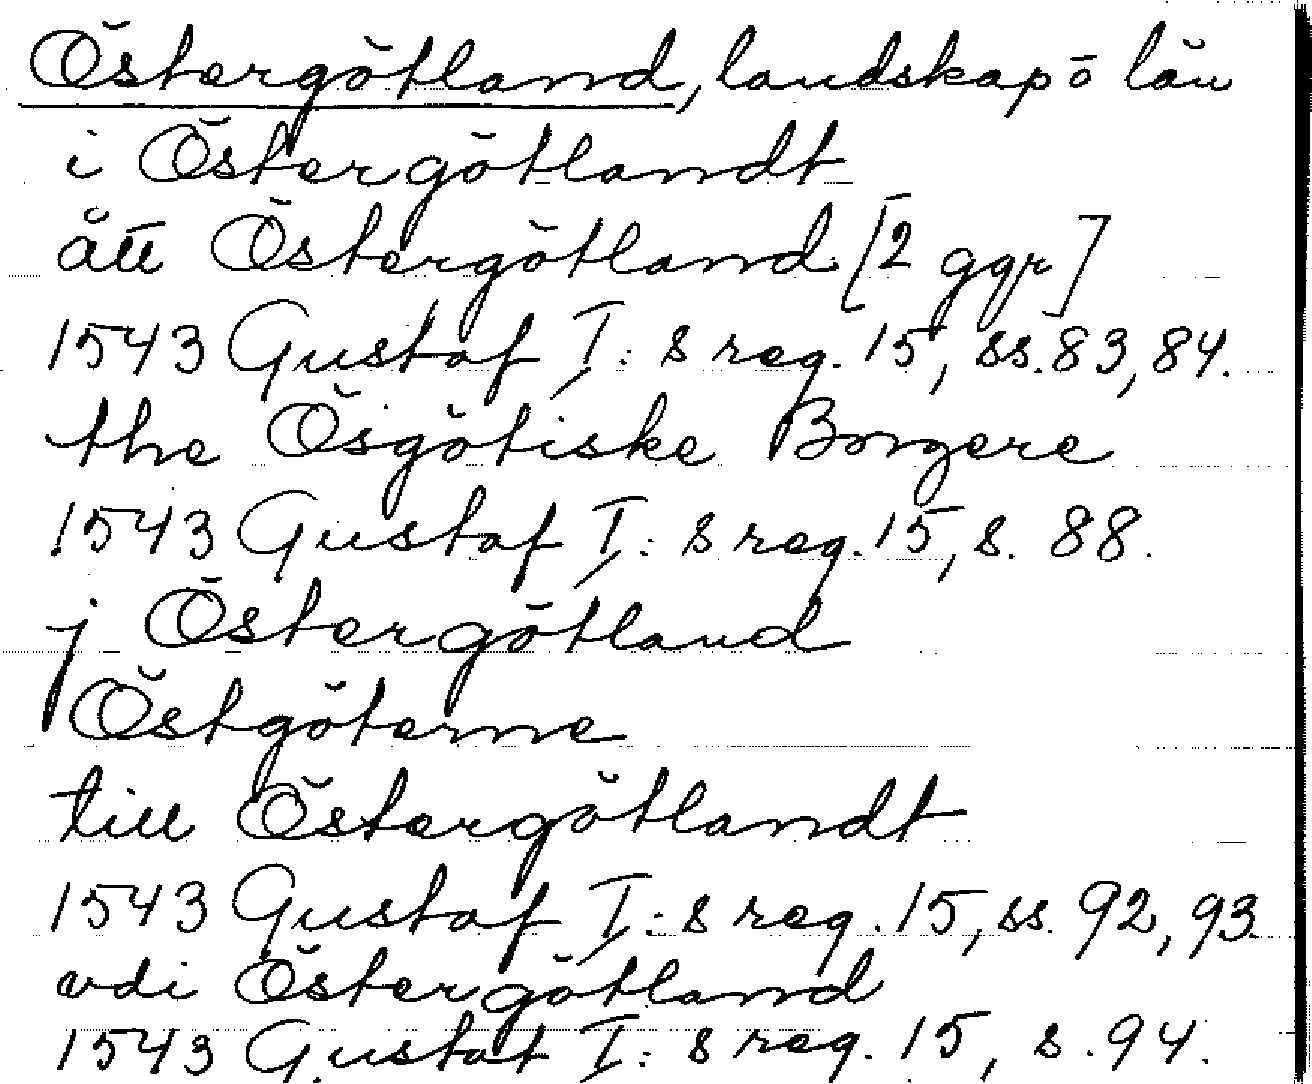 Östergötland, landskap o län
i Östergötlandt
ått Östergötland [2 ggr]
1543 Gustaf I:s reg. 15, ss. 83, 84.
the Ösgötiske Borgere
1543 Gustaf I:s reg. 15, s. 88.
j Östergötland
Östgöterne
till Östergötlandt
1543 Gustaf I:s reg. 15, ss. 92, 93.
vdi Östergötland
1543 Gustaf I:s reg. 15, s. 94.